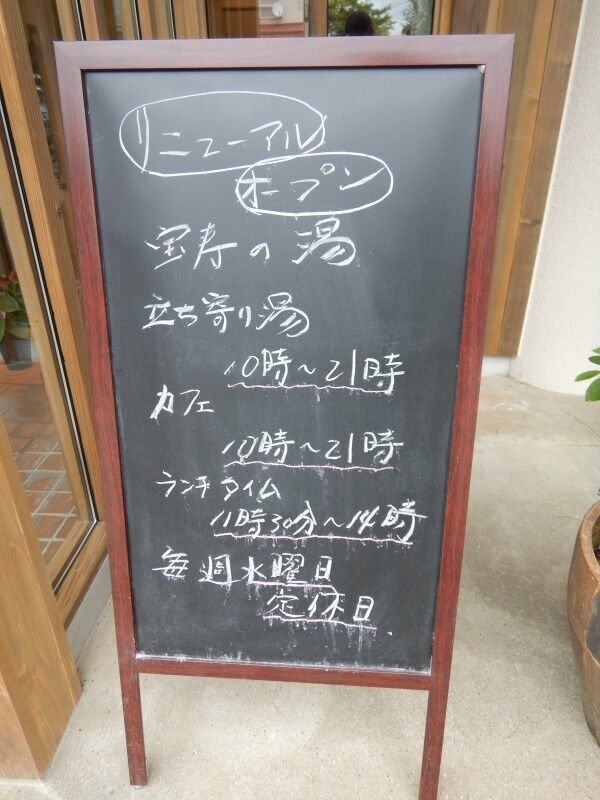 リニューアル
オープン
宝寿の湯
立ち寄り湯
10時～21時
カフェ
10時～21時
ランチタイム
11時30分～14時
毎週水曜日
定休日